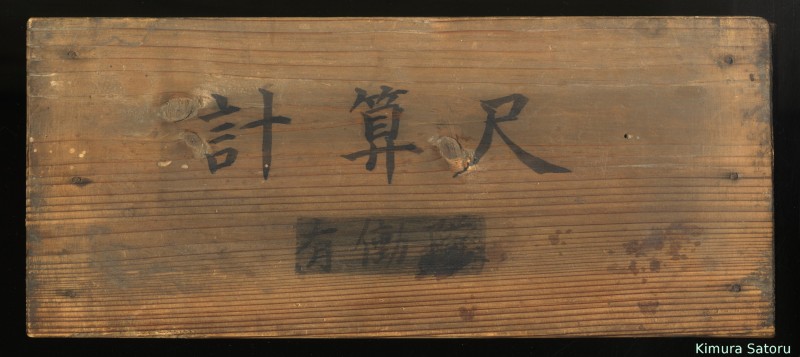 計算尺
有働
Kimura Satoru